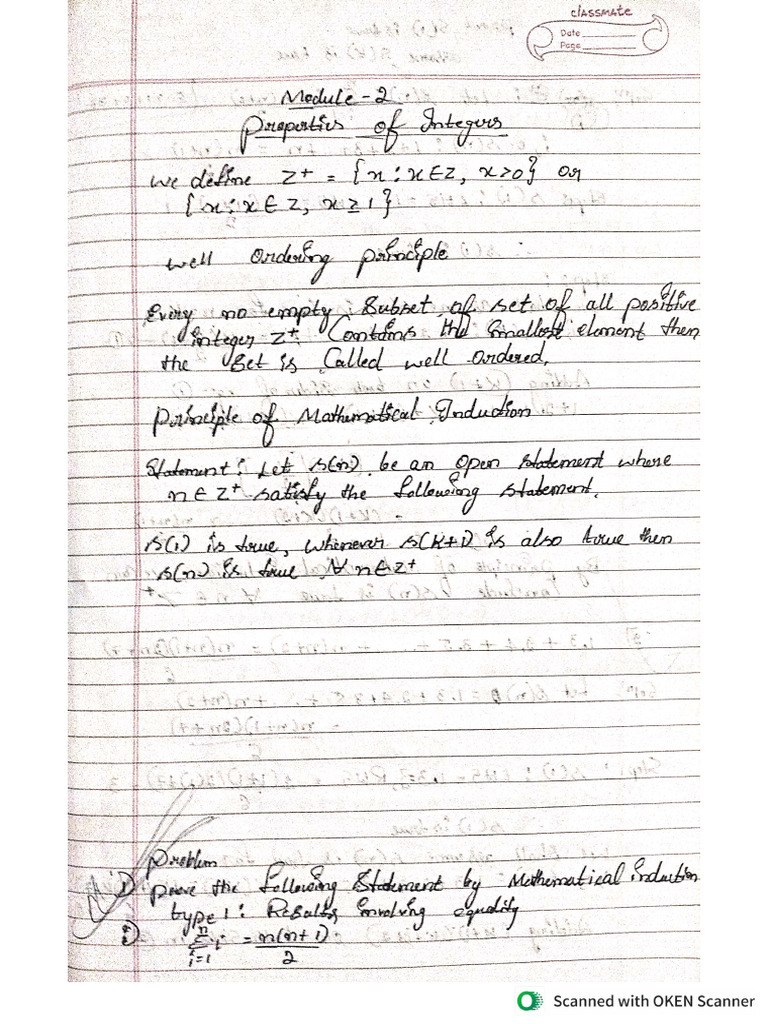 classmate
Date
Page
Module - 2
Properties of Integers
we define Z+ = {x : x ∈ Z, x > 0} or
{x : x ∈ Z, x ≥ 1}
well ordering principle
Every no empty subset of set of all positive
integer Z+ Contains the smallest element then
the set is Called well ordered.
Principle of Mathematical Induction
Statement : Let s(n) be an open statement where
n ∈ Z+ satisfy the following statement.
s(1) is true, whenever s(k+1) is also true then
s(n) is true ∀ n ∈ Z+
Problem
1) prove the following Statement by Mathematical induction
type 1 : Results involving equality
i) n Σ i=1 i = n(n+1)/2
Scanned with OKEN Scanner